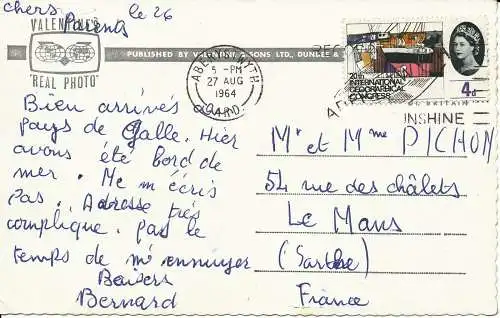 chers Parents le 26
VALENTINE'S
"REAL PHOTO"
PUBLISHED BY VALENTINE & SONS LTD., DUNDEE &
ABERYSTWYTH
5 - PM
27 AUG
1964
CARD.
20th INTERNATIONAL
GEOGRAPHICAL
CONGRESS
4d
NSHINE
Bien arrivés au
pays de Galle. Hier
avons été bord de
mer. Ne m'écris
pas. Adresse très
compliqué. pas le
temps de m'ennuyer
Baisers
Bernard
Mr et Mme PICHON
54 rue des châlets
Le Mans
(Sarthe)
France